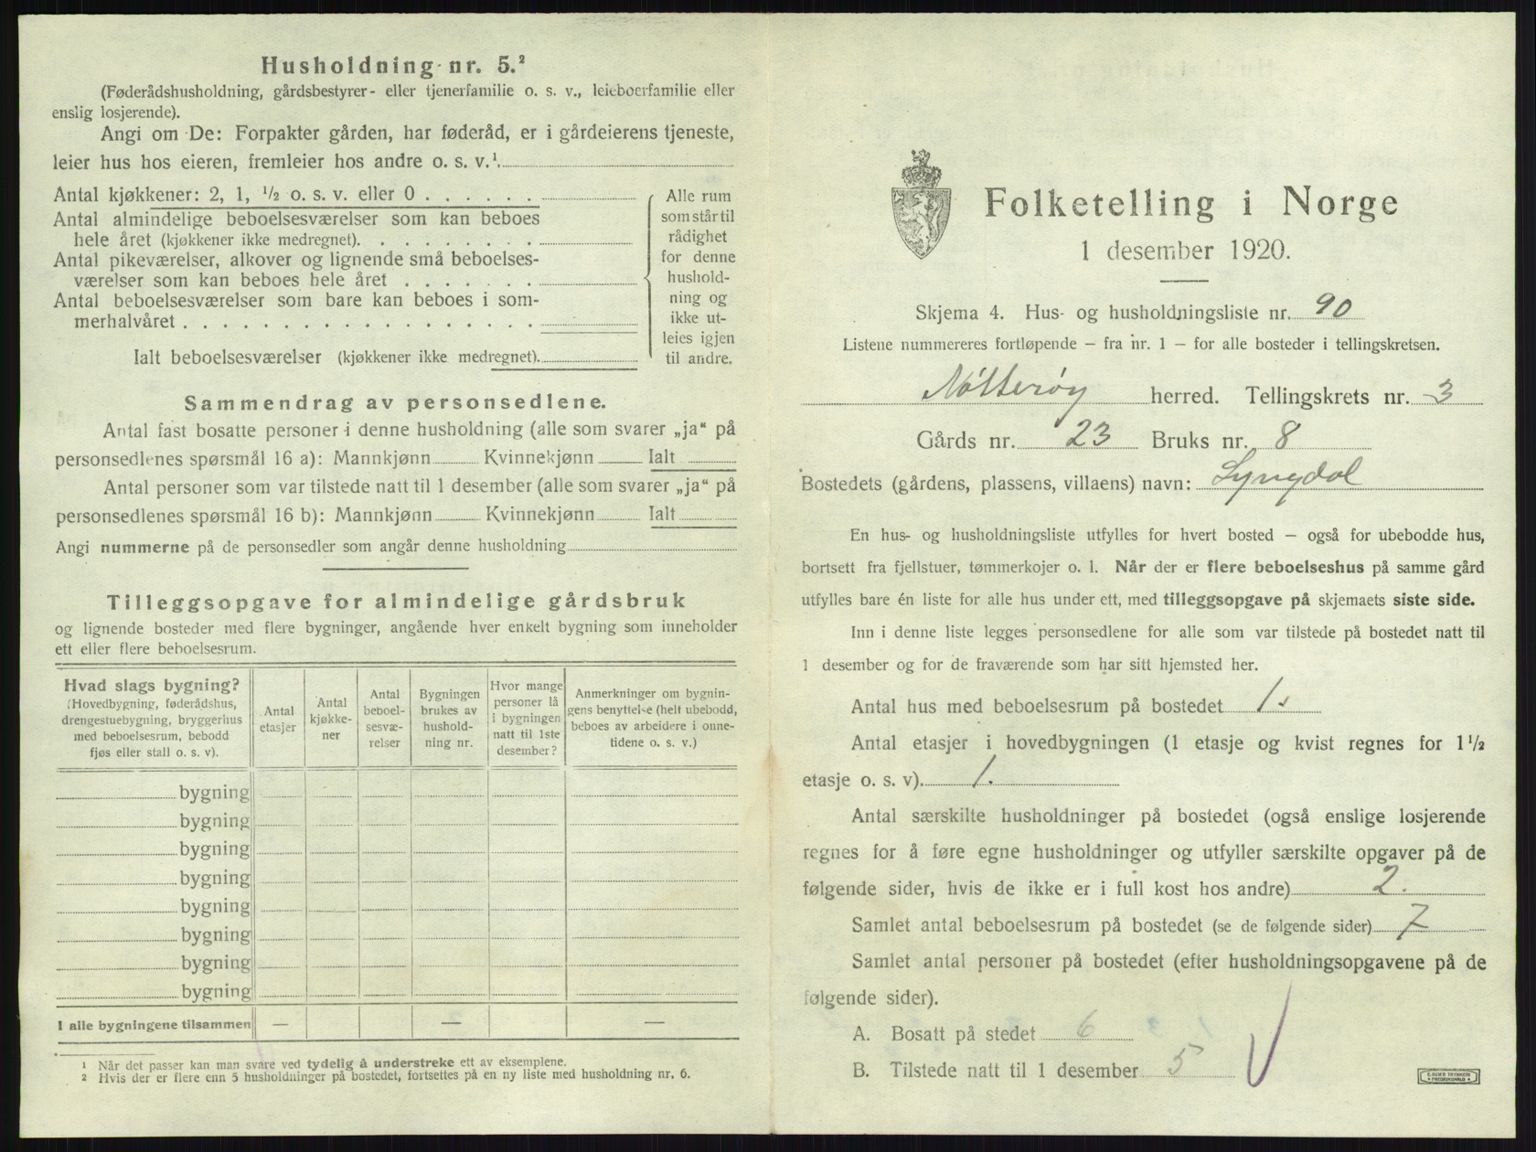 Husholdning nr. 5.²
(Føderådshusholdning, gårdsbestyrer- eller tjenerfamilie o. s. v., leieboerfamilie eller
enslig losjerende).
Angi om De: Forpakter gården, har føderåd, er i gårdeierens tjeneste,
leier hus hos eieren, fremleier hos andre o. s. v.¹
Antal kjøkkener: 2, 1, ½ o. s. v. eller 0 . . . . . .
Antal almindelige beboelsesværelser som kan beboes
hele året (kjøkkener ikke medregnet). . . . . . . . .
Antal pikeværelser, alkover og lignende små beboelses-
værelser som kan beboes hele året . . . . . . .
Antal beboelsesværelser som bare kan beboes i som-
merhalvåret . . . . . . . . . . . . . . . . . .
Ialt beboelsesværelser (kjøkkener ikke medregnet).
Alle rum
som står til
rådighet
for denne
hushold-
ning og
ikke ut-
leies igjen
til andre.
Sammendrag av personsedlene.
Antal fast bosatte personer i denne husholdning (alle som svarer „ja“ på
personsedlenes spørsmål 16 a): Mannkjønn Kvinnekjønn Ialt
Antal personer som var tilstede natt til 1 desember (alle som svarer „ja“ på
personsedlenes spørsmål 16 b): Mannkjønn Kvinnekjønn Ialt
Angi nummerne på de personsedler som angår denne husholdning
Tilleggsopgave for almindelige gårdsbruk
og lignende bosteder med flere bygninger, angående hver enkelt bygning som inneholder
ett eller flere beboelsesrum.
Hvad slags bygning?
(Hovedbygning, føderådshus,
drengestuebygning, bryggerhus
med beboelsesrum, bebodd
fjøs eller stall o. s. v).
Antal
etasjer
Antal
kjøkke-
ner
Antal
beboel-
sesvæ-
relser
Bygningen
brukes av
hushold-
ning nr.
Hvor mange
personer lå
i bygningen
natt til 1ste
desember?
Anmerkninger om bygnin-
gens benyttelse (helt ubebodd,
beboes av arbeidere i onne-
tidene o. s. v.)
bygning
bygning
bygning
bygning
bygning
bygning
bygning
bygning
I alle bygningene tilsammen — — —
¹ Når det passer kan man svare ved tydelig å understreke ett av eksemplene.
² Hvis der er flere enn 5 husholdninger på bostedet, fortsettes på en ny liste med husholdning nr. 6.
Folketelling i Norge
1 desember 1920.
Skjema 4. Hus- og husholdningsliste nr. 90
Listene nummereres fortløpende — fra nr. 1 — for alle bosteder i tellingskretsen.
Nøtterøy herred. Tellingskrets nr. 3
Gårds nr. 23 Bruks nr. 8
Bostedets (gårdens, plassens, villaens) navn: Lyngdal
En hus- og husholdningsliste utfylles for hvert bosted — også for ubebodde hus,
bortsett fra fjellstuer, tømmerkojer o. l. Når der er flere beboelseshus på samme gård
utfylles bare én liste for alle hus under ett, med tilleggsopgave på skjemaets siste side.
Inn i denne liste legges personsedlene for alle som var tilstede på bostedet natt til
1 desember og for de fraværende som har sitt hjemsted her.
Antal hus med beboelsesrum på bostedet 1.
Antal etasjer i hovedbygningen (1 etasje og kvist regnes for 1½
etasje o. s. v). 1.
Antal særskilte husholdninger på bostedet (også enslige losjerende
regnes for å føre egne husholdninger og utfyller særskilte opgaver på de
følgende sider, hvis de ikke er i full kost hos andre) 2.
Samlet antal beboelsesrum på bostedet (se de følgende sider) 7
Samlet antal personer på bostedet (efter husholdningsopgavene på de
følgende sider).
A. Bosatt på stedet 6
B. Tilstede natt til 1 desember 5